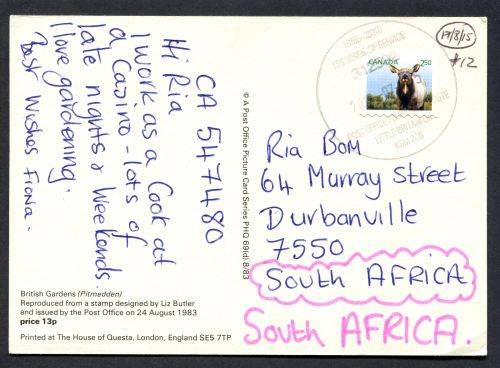 CA 547480
Hi Ria
I work as a Cook at
a Casino - lots of
late nights & weekends.
I love gardening.
Best Wishes Fiona.
British Gardens (Pitmedden)
Reproduced from a stamp designed by Liz Butler
and issued by the Post Office on 24 August 1983
price 13p
Printed at The House of Questa, London, England SE5 7TP
© A Post Office Picture Card Series PHQ 69(d) 8/83
17/8/15
#12
CANADA 250
Ria Bom
64 Murray Street
Durbanville
7550
South AFRICA
South AFRICA.